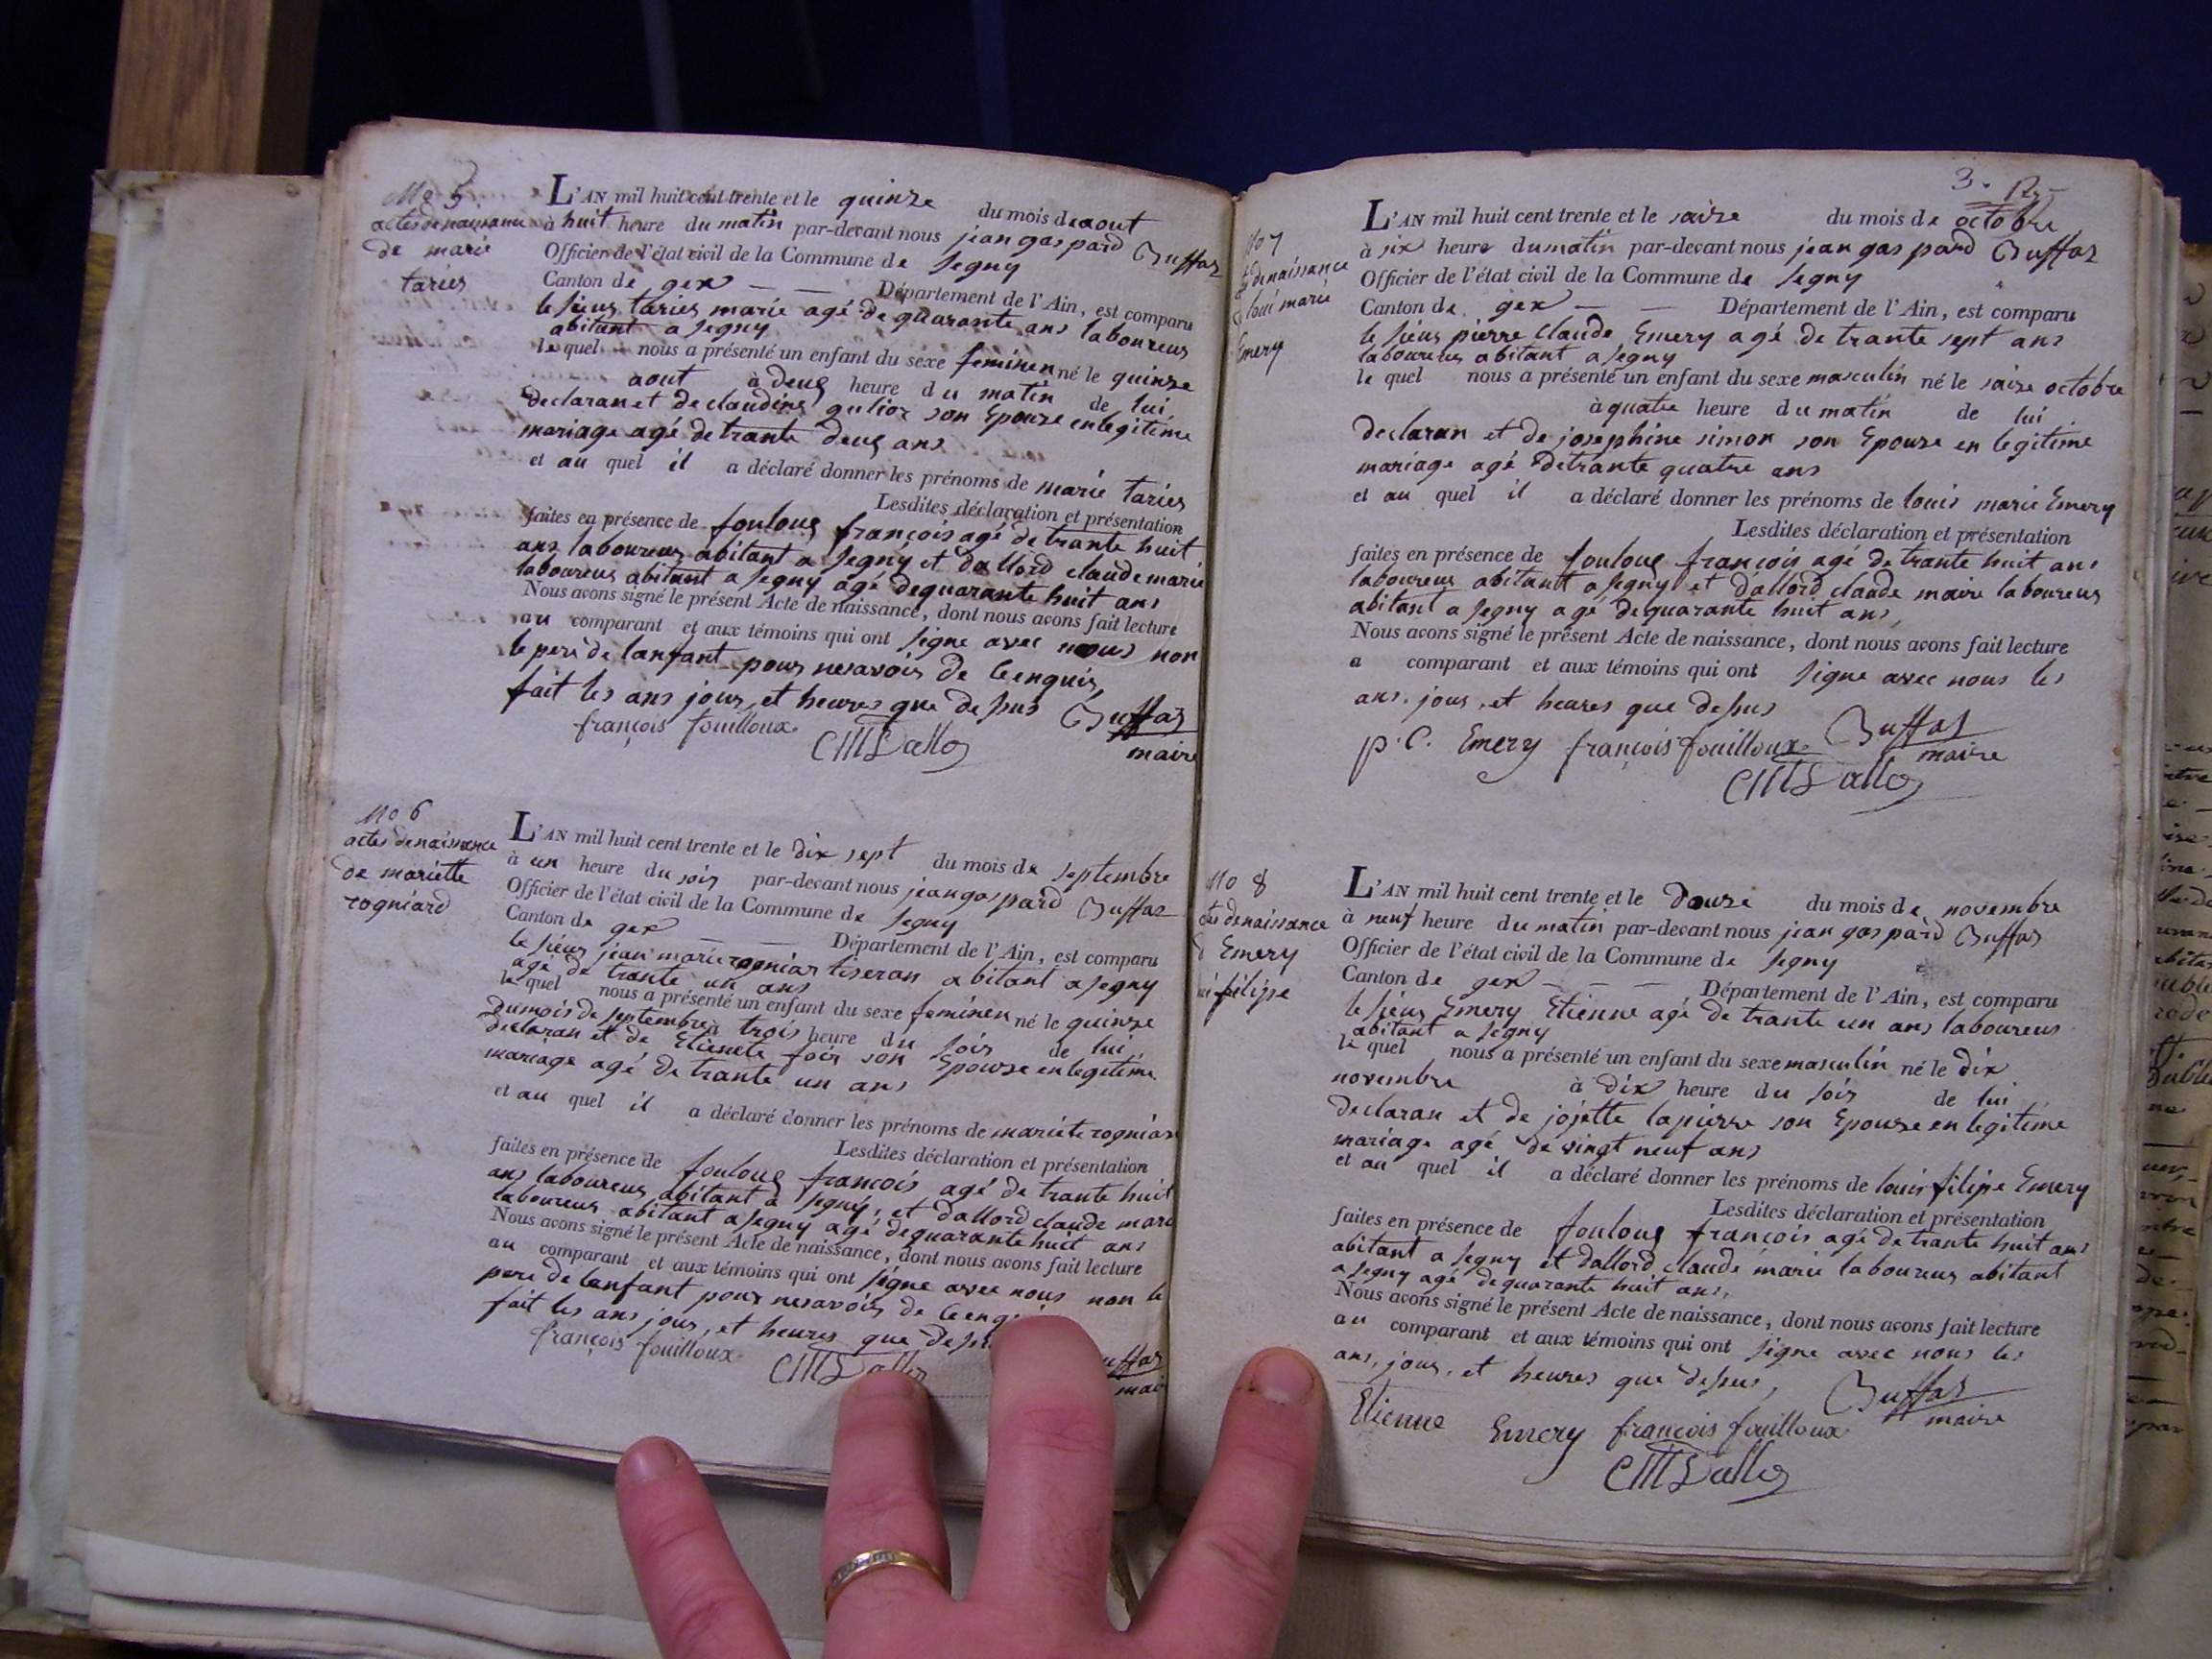 No 5
actes de naissance
de marie
taries
L'AN mil huit cent trente et le quinze du mois de aout
à huit heure du matin par-devant nous jean gaspard Buffaz
Officier de l'état civil de la Commune de segny
Canton de gex — — Département de l'Ain, est comparu
le sieur taries marie agé de quarante ans laboureus
abitant a segny
lequel nous a présenté un enfant du sexe feminen né le quinze
aout à deus heure du matin de lui
declaran et de claudine son Epouse en legitime
mariage agé de trante deus ans
et au quel il a déclaré donner les prénoms de marie taries
Lesdites déclaration et présentation
faites en présence de foulous françois agé de trante huit
ans laboureus abitant a segny et dallord claude marie
laboureus abitant a segny agé de quarante huit ans
Nous avons signé le présent Acte de naissance, dont nous avons fait lecture
au comparant et aux témoins qui ont signe avec nous non
le pere de lanfant pour ne savoir de ce enquis,
fait les ans jour, et heures que desus Buffaz
françois fouilloux CMDallo maire
No 6
actes de naissance
de mariette
rogniard
L'AN mil huit cent trente et le dix sept du mois de septembre
à un heure du soir par-devant nous jean gaspard Buffaz
Officier de l'état civil de la Commune de segny
Canton de gex — — Département de l'Ain, est comparu
le sieur jean marie rogniar tiseran abitant a segny
agé de trante un ans
le quel nous a présenté un enfant du sexe feminen né le quinze
du mois de septembre à trois heure du soir de lui
declaran et de Etienete foir son Epouse en legitime
mariage agé de trante un ans
et au quel il a déclaré donner les prénoms de mariete rogniar
Lesdites déclaration et présentation
faites en présence de foulous francois agé de trante huit
ans laboureus abitant a segny, et dallord claude mari
laboureus abitant a segny agé de quarante huit ans
Nous avons signé le présent Acte de naissance, dont nous avons fait lecture
au comparant et aux témoins qui ont signe avec nous non le
pere de lanfant pour ne savoir de ce
fait les ans jour, et heures que
françois fouilloux CMDallo
3.
No 7
de naissance
loui marie
Emery
L'AN mil huit cent trente et le saize du mois de octobre
à six heure du matin par-devant nous jean gaspard Buffaz
Officier de l'état civil de la Commune de segny
Canton de gex — — Département de l'Ain, est comparu
le sieur pierre claude Emery agé de trante sept ans
laboureus abitant a segny
le quel nous a présenté un enfant du sexe masculin né le saize octobre
à quatre heure du matin de lui
declaran et de josephine simon son Epouse en legitime
mariage agé de trante quatre ans
et au quel il a déclaré donner les prénoms de louis marie Emery
Lesdites déclaration et présentation
faites en présence de foulous francois agé de trante huit ans
laboureus abitant a segny et dallord claude marie laboureus
abitant a segny agé de quarante huit ans,
Nous avons signé le présent Acte de naissance, dont nous avons fait lecture
a comparant et aux témoins qui ont signe avec nous les
ans, jour, et heures que desus
p. C. Emery françois fouilloux Buffaz maire
CMDallo
No 8
de naissance
Emery
filipe
L'AN mil huit cent trente et le douze du mois de novembre
à neuf heure du matin par-devant nous jean gaspard Buffaz
Officier de l'état civil de la Commune de segny
Canton de gex — — — Département de l'Ain, est comparu
le sieur Emery Etienne agé de trante un ans laboureus
abitant a segny
le quel nous a présenté un enfant du sexe masculin né le dix
novembre à dix heure du soir de lui
declaran et de jojette lapierre son Epouse en legitime
mariage agé de vingt neuf ans
et au quel il a déclaré donner les prénoms de louis filipe Emery
Lesdites déclaration et présentation
faites en présence de foulous francois agé de trante huit ans
abitant a segny et dallord claude marie laboureus abitant
a segny agé de quarante huit ans,
Nous avons signé le présent Acte de naissance, dont nous avons fait lecture
au comparant et aux témoins qui ont signe avec nous les
ans, jour, et heures que desus, Buffaz
Etienne Emery françois fouilloux maire
CMDallo